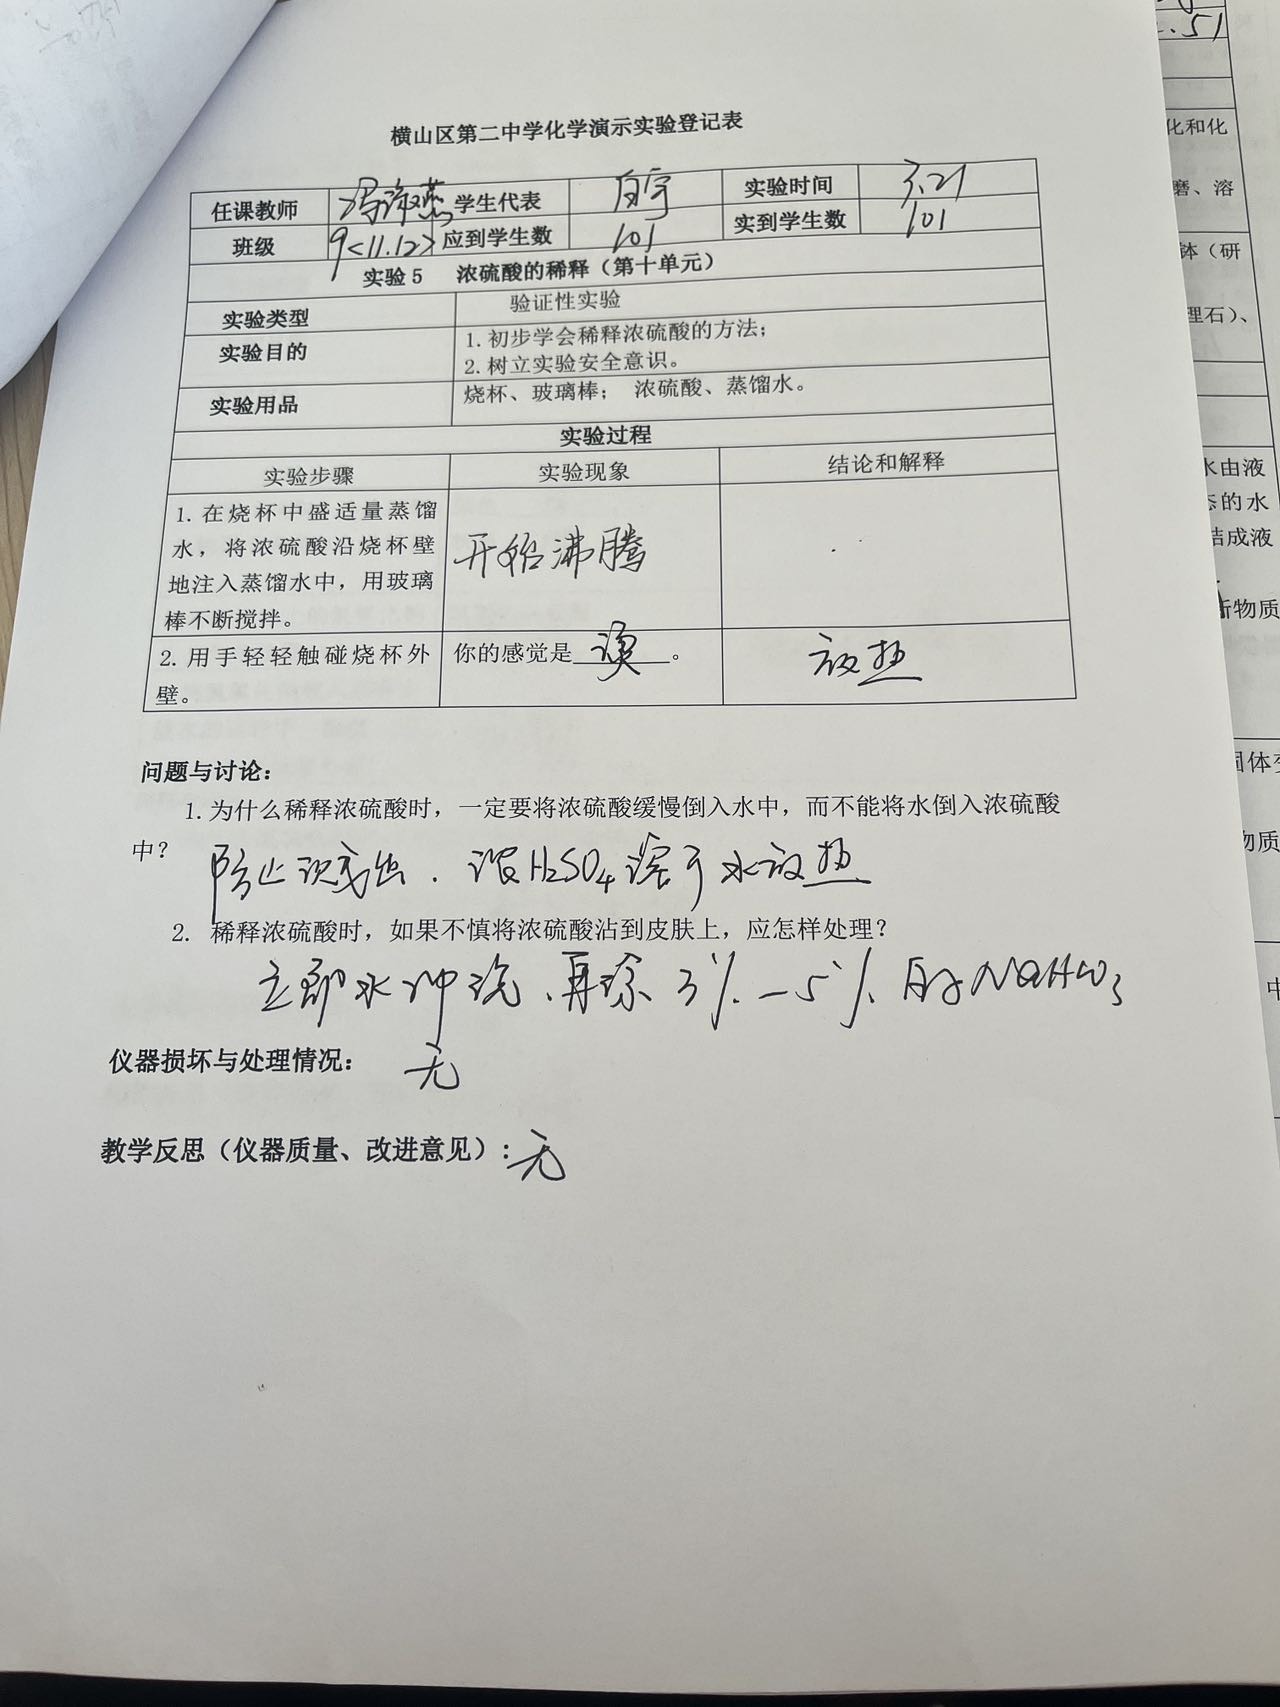 横山区第二中学化学演示实验登记表
任课教师 学生代表 白宇 实验时间 3.21
班级 9<11.12> 应到学生数 101 实到学生数 101
实验5 浓硫酸的稀释（第十单元）
实验类型 验证性实验
实验目的 1. 初步学会稀释浓硫酸的方法；
2. 树立实验安全意识。
实验用品 烧杯、玻璃棒； 浓硫酸、蒸馏水。
实验过程
实验步骤 实验现象 结论和解释
1. 在烧杯中盛适量蒸馏
水，将浓硫酸沿烧杯壁
地注入蒸馏水中，用玻璃
棒不断搅拌。
开始沸腾
2. 用手轻轻触碰烧杯外
壁。
你的感觉是 烫 。
放热
问题与讨论：
1. 为什么稀释浓硫酸时，一定要将浓硫酸缓慢倒入水中，而不能将水倒入浓硫酸
中？
防止溅出．浓H₂SO₄溶于水放热
2. 稀释浓硫酸时，如果不慎将浓硫酸沾到皮肤上，应怎样处理？
立即水冲洗、再涂3%—5%的NaHCO₃
仪器损坏与处理情况： 无
教学反思（仪器质量、改进意见）：无
.51
化和化
磨、溶
钵（研
理石）、
水由液
态的水
结成液
新物质
固体变
物质
中